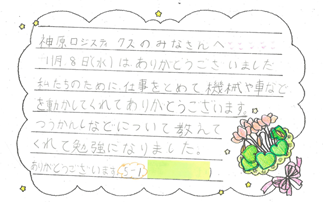 神原ロジスティクスのみなさんへ……
11月8日(水)はありがとうございました
私たちのために、仕事をとめて機械や車など
を動かしてくれてありがとうございます。
つうかんしなどについて教えて
くれて勉強になりました。
ありがとうございます 5-1